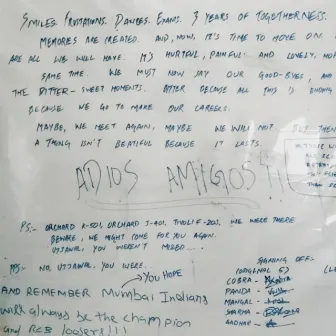 SMILES. FRUSTATIONS. DANCES. EXAMS. 3 YEARS OF TOGETHERNESS.
MEMORIES ARE CREATED. AND, NOW, IT'S TIME TO MOVE ON
ARE ALL WE WILL HAVE. IT'S HURTFUL, PAINFUL AND LONELY.
SAME TIME WE MUST NOW SAY OUR GOOD-BYES, AND
THE BITTER-SWEET MOMENTS. BITTER BECAUSE ALL THIS IS ENDING,
BECAUSE WE GO TO MAKE OUR CAREERS.
MAYBE, WE MEET AGAIN, MAYBE WE WILL NOT. BUT THEN
A THING ISN'T BEATIFUL BECAUSE IT LASTS.
ADIOS AMIGIOS!!!
PS:- ORCHARD K-501, ORCHARD J-401, TIVOLI F-203. WE WERE THERE
BEWARE, WE MIGHT COME FOR YOU AGAIN.
UJJAWAL, YOU WEREN'T MISSED....
PPS:- NO, UJJAWAL. YOU WERE.
YOU HOPE
AND REMEMBER Mumbai Indians
will always be the champion
(and RCB loosers)!!!
SIGNING OFF:-
(ORIGINAL 5)
COBRA -
PANDA -
MANGAL -
SHARMA -
AADHAR -